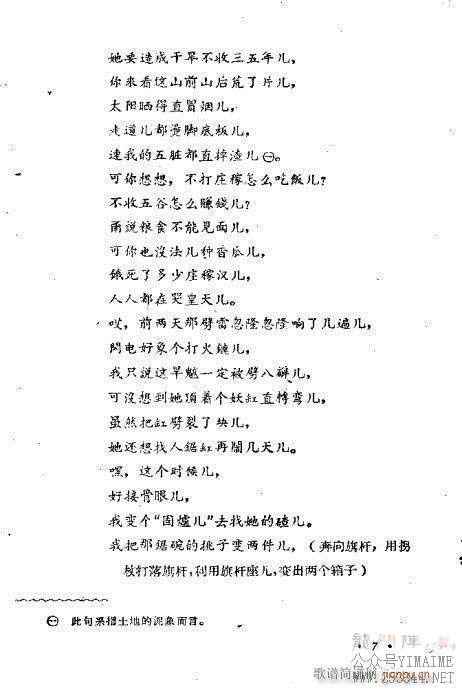 她要造成干旱不收三五年儿，
你来看这山前山后荒了片儿，
太阳晒得直冒烟儿，
走道儿都烫脚底板儿，
連我的五脏都直掉渣儿㊀。
可你想想，不打庄稼怎么吃飯儿？
不收五谷怎么賺錢儿？
甭説粮食不能见面儿，
可你也沒法儿种香瓜儿，
餓死了多少庄稼汉儿，
人人都在哭皇天儿。
哎，前两天那劈雷忽隆忽隆响了几遍儿，
閃电好象个打火鐮儿，
我只說这旱魃一定被劈八瓣儿，
可沒想到她頂着个妖缸直轉弯儿，
虽然把缸劈裂了块儿，
她还想找人鋸缸再閙几天儿。
嘿，这个时候儿，
好接骨眼儿，
我变个“固爐儿”去找她的碴儿。
我把那鋸碗的挑子变两件儿，（奔向旗杆，用拐
杖打落旗杆，利用旗杆座儿，变出两个箱子）
㊀ 此句系指土地的泥象而言。
· 7 ·
龍門陣
公众号YIMAIME
歌谱简谱网